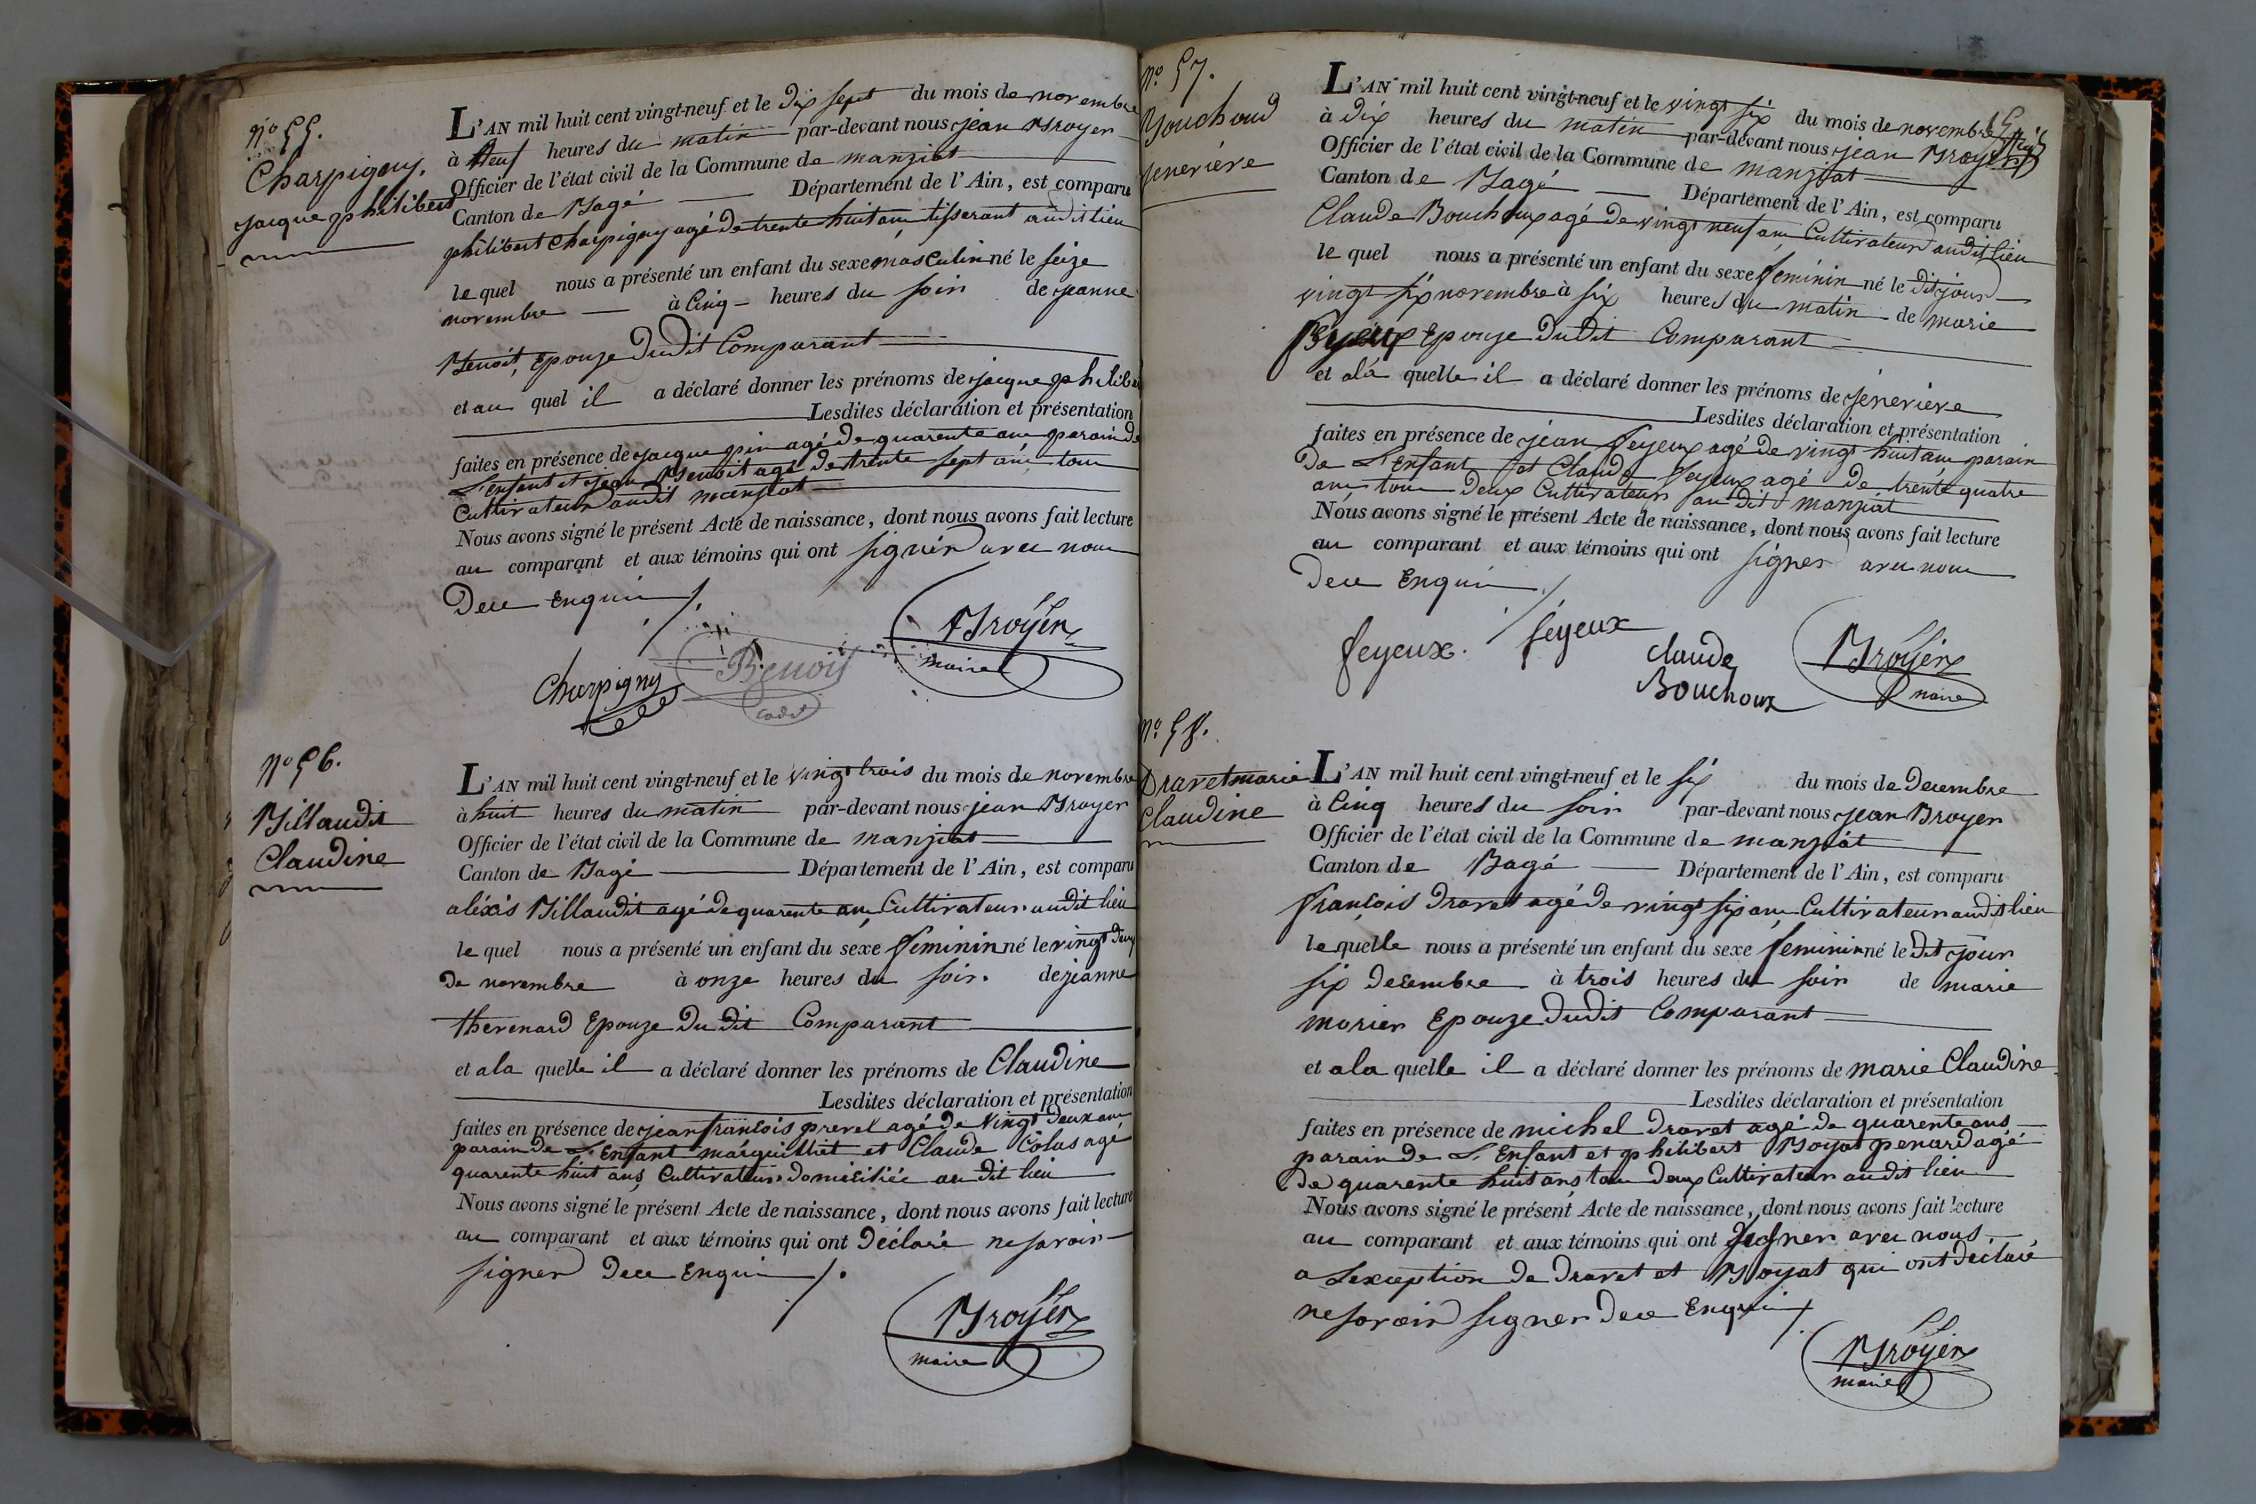 N° 55.
Charpigny,
jacque philibert
L'AN mil huit cent vingt-neuf et le dix sept du mois de novembre
à neuf heures du matin par-devant nous jean Broyer
Officier de l'état civil de la Commune de manziat
Canton de Bagé Département de l'Ain, est comparu
philibert Charpigny agé de trente huit ans tisserant audit lieu
le quel nous a présenté un enfant du sexe masculin né le seize
novembre à Cinq heures du soir de jeanne
Benoit, Epouze dudit Comparant
et au quel il a déclaré donner les prénoms de jacque philibert
Lesdites déclaration et présentation
faites en présence de jacque pin agé de quarente ans parain de
L'enfant et jean Benoit agé de trente sept ans tous
Cultivateur audit manziat
Nous avons signé le présent Acte de naissance, dont nous avons fait lecture
au comparant et aux témoins qui ont signér avec nous
Dece Enquis ./.
Charpigny Benoit cadet Broyer maire
N° 56.
Billaudit
Claudine
L'AN mil huit cent vingt-neuf et le vingt trois du mois de novembre
à huit heures du matin par-devant nous jean Broyer
Officier de l'état civil de la Commune de manziat
Canton de Bagé Département de l'Ain, est comparu
aléxis Billaudit agé de quarente ans Cultivateur audit lieu
le quel nous a présenté un enfant du sexe feminin né le vingt deux
de novembre à onze heures du soir. de jeanne
thevenard Epouze du dit Comparant
et ala quelle il a déclaré donner les prénoms de Claudine
Lesdites déclaration et présentation
faites en présence de jean françois prevel agé de Vingt deux ans
parain de L'Enfant marguilliet et Claude Colas agé
quarente huit ans Cultivateur domiciliée au dit lieu
Nous avons signé le présent Acte de naissance, dont nous avons fait lecture
au comparant et aux témoins qui ont déclaré ne savoir
signer Dece Enquis ./.
Broyer
maire
N° 57.
Bouchoud
jenevieve
L'AN mil huit cent vingt-neuf et le vingt six du mois de novembre
à dix heures du matin par-devant nous jean Broyer
Officier de l'état civil de la Commune de manziat
Canton de Bagé Département de l'Ain, est comparu
Claude Bouchoux agé de vingt neuf ans Cultivateur audit lieu
le quel nous a présenté un enfant du sexe feminin né le dit jour
vingt six novembre à six heures du matin de marie
feyeux Epouze Dudit Comparant
et ala quelle il a déclaré donner les prénoms de jenevieve
Lesdites déclaration et présentation
faites en présence de jean feyeux agé de vingt huit ans parain
De L'Enfant et Claude feyeux agé de trente quatre
ans tous deux Cultivateur au dit manziat
Nous avons signé le présent Acte de naissance, dont nous avons fait lecture
au comparant et aux témoins qui ont signer avec nous
Dece Enquis ./.
feyeux. feyeux Claude Bouchoux Broyer maire
N° 58.
Dravet marie
Claudine
L'AN mil huit cent vingt-neuf et le six du mois de Decembre
à Cinq heures du soir par-devant nous jean Broyer
Officier de l'état civil de la Commune de manziat
Canton de Bagé Département de l'Ain, est comparu
françois Dravet agé de vingt six ans Cultivateur audit lieu
le quelle nous a présenté un enfant du sexe feminin né le dit jour
six decembre à trois heures du soir de marie
morier Epouze dudit Comparant
et ala quelle il a déclaré donner les prénoms de marie Claudine
Lesdites déclaration et présentation
faites en présence de michel Dravet agé de quarente ans
parain de L'Enfant et philibert Boyat penard agé
De quarente huit ans tous Deux Cultivateur audit lieu
Nous avons signé le présent Acte de naissance, dont nous avons fait lecture
au comparant et aux témoins qui ont signer avec nous.
a L'exception de Dravet et Boyat qui ont déclaré
ne savoir signer Dece Enquis ./.
Broyer
maire